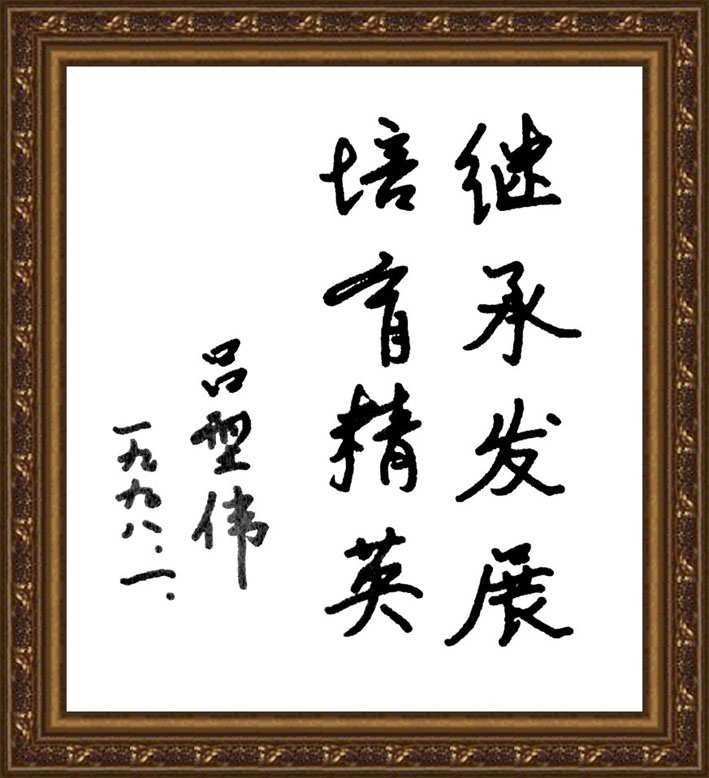 继承发展
培育精英
吕型伟
一九九八.一.